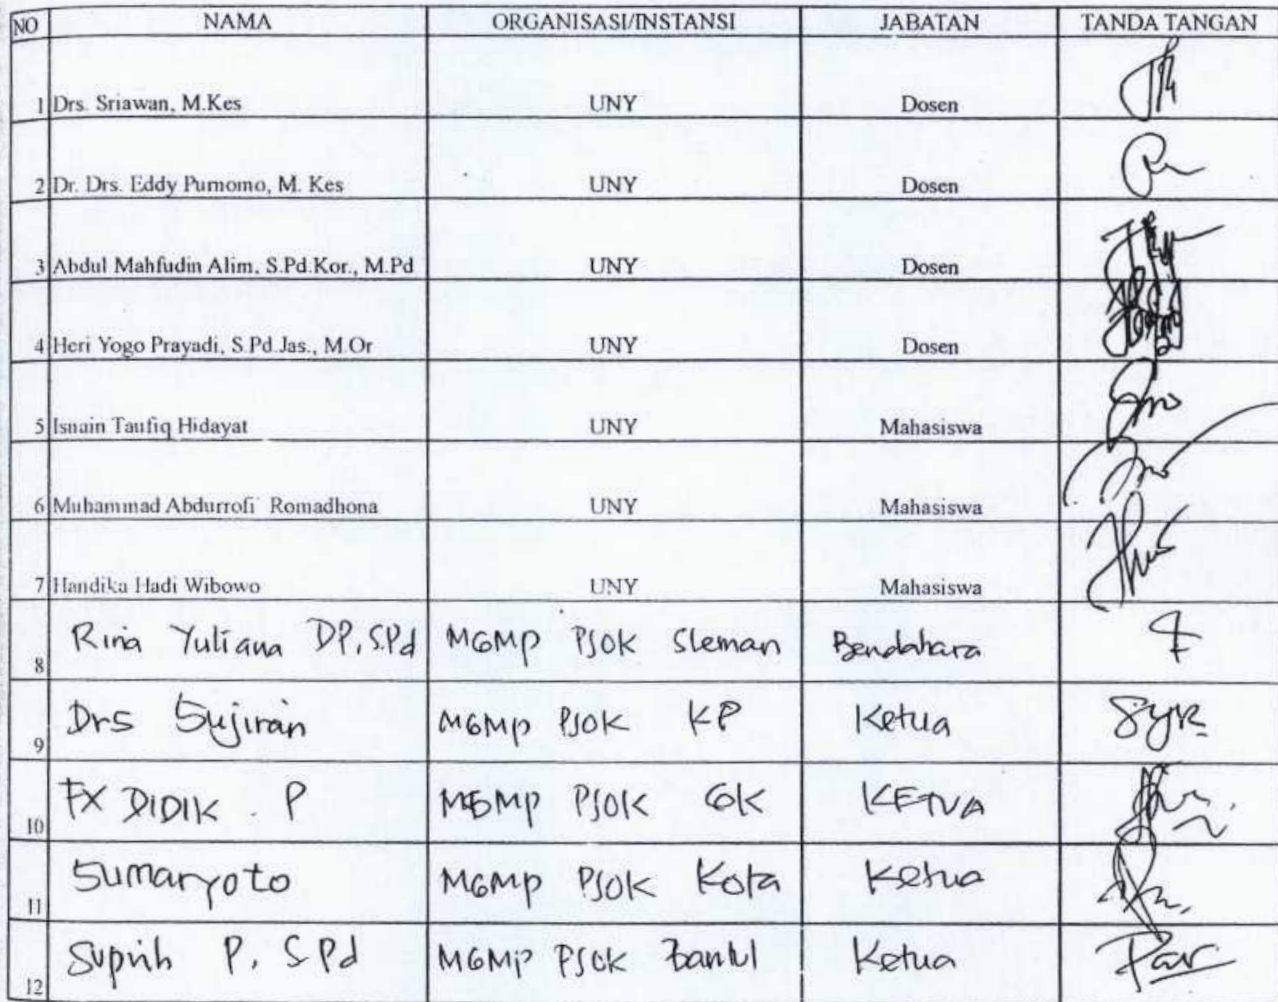 NO NAMA ORGANISASI/INSTANSI JABATAN TANDA TANGAN
1 Drs. Sriawan, M.Kes UNY Dosen
2 Dr. Drs. Eddy Purnomo, M. Kes UNY Dosen
3 Abdul Mahfudin Alim, S.Pd.Kor., M.Pd UNY Dosen
4 Heri Yogo Prayadi, S.Pd.Jas., M.Or UNY Dosen
5 Isnain Taufiq Hidayat UNY Mahasiswa
6 Muhammad Abdurrofi` Romadhona UNY Mahasiswa
7 Handika Hadi Wibowo UNY Mahasiswa
8 Rina Yuliana DP, S.Pd MGMP PJOK Sleman Bendahara
9 Drs Sujiran MGMP PJOK KP Ketua
10 FX DIDIK . P MGMP PJOK GK KETUA
11 Sumaryoto MGMP PJOK Kota Ketua
12 P, S.Pd MGMP PJOK Bantul Ketua